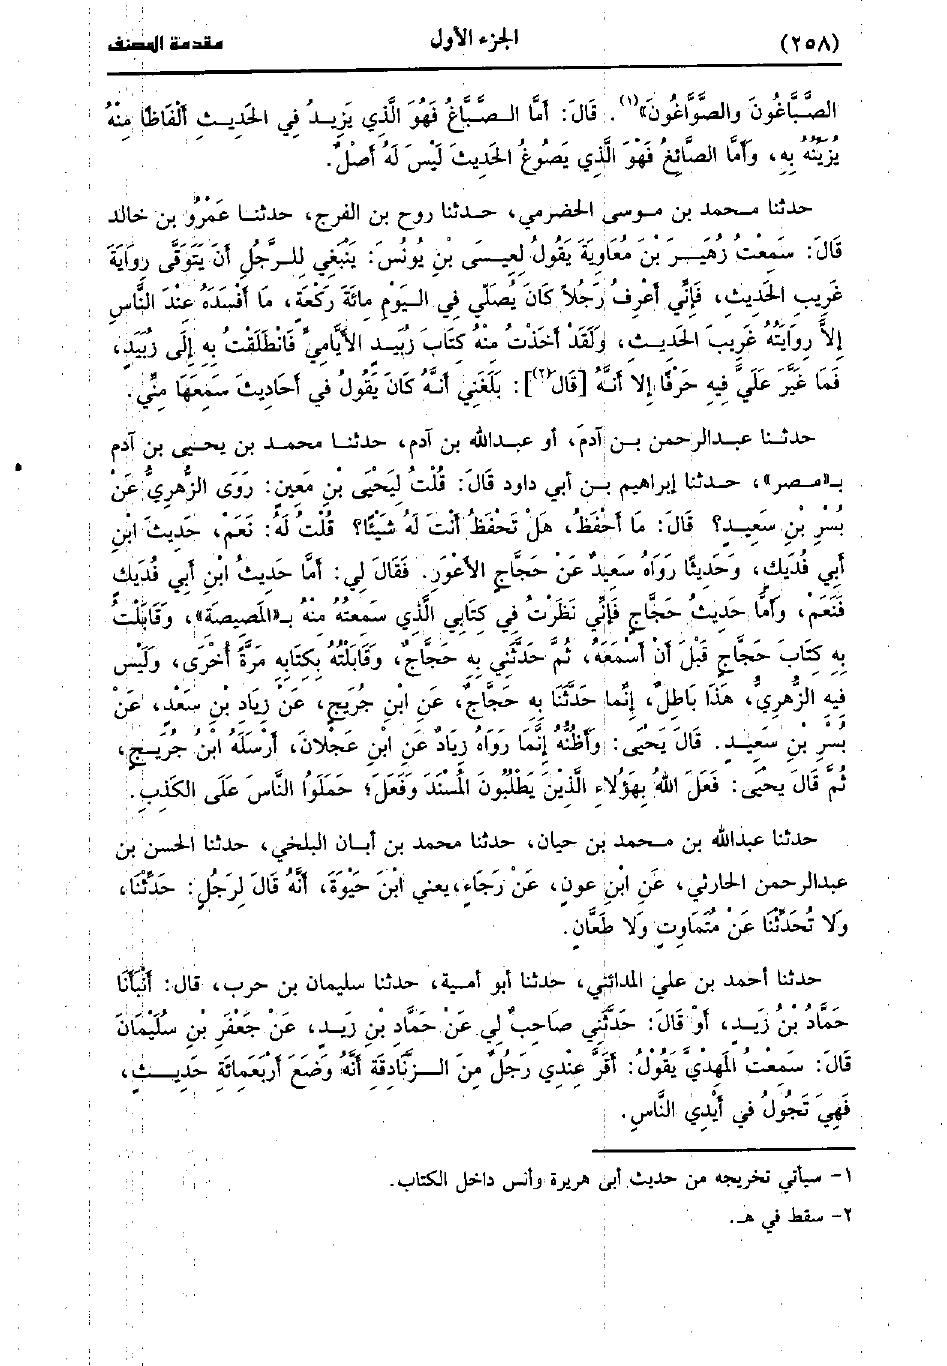 (٢٥٨) الجزء الأول مقدمة المصنف
الصَّبَّاغُونَ والصَّوَّاغُونَ»(١). قَالَ: أمَّا الصَّبَّاغُ فَهُوَ الَّذِي يَزِيدُ فِي الحَدِيثِ ألْفَاظًا مِنْهُ
يُزَيِّنُهُ بِهِ، وَأمَّا الصَّائِغُ فَهْوَ الَّذِي يَصُوغُ الحَدِيثَ لَيْسَ لَهُ أصْلٌ.
حدثنا محمد بن موسى الحضرمي، حدثنا روح بن الفرج، حدثنا عَمْرُو بن خالد
قَالَ: سَمَعْتُ زُهَيْرَ بْنَ مُعَاوِيَةَ يَقُولُ لِعِيسَى بْنِ يُونُسَ: يَنْبَغِي لِلرَّجُلِ أنَ يَتَوَقَّى رِوَايَةَ
غَرِيبِ الحَدِيثِ، فَإنِّي أعْرِفُ رَجُلاً كَانَ يُصَلِّي فِي اليَوْمِ مِائَةَ رَكْعَةٍ، مَا أفْسَدَهُ عِنْدَ النَّاسِ
إلاَّ رِوَايَتُهُ غَرِيبَ الحَدِيثِ، وَلَقَدْ أخَذْتُ مِنْهُ كِتَابَ زُبَيْدٍ الأيَّامِي فَانْطَلَقْتُ بِهِ إلَى زُبَيْدٍ،
فَمَا غَيَّرَ عَلَيَّ فِيهِ حَرْفًا إلا أنَّهُ [قَال(٢)]: بَلَغَنِي أنَّهُ كَانَ يَقُولُ فِي أحَادِيثَ سَمِعَهَا مِنِّي.
حدثنا عبدالرحمن بن آدمَ، أو عبدالله بن آدم، حدثنا محمد بن يحيى بن آدم
بـ«مصر»، حدثنا إبراهيم بن أبي داود قَالَ: قُلْتُ لِيَحْيَى بْنِ مَعِينٍ: رَوَى الزُّهْرِيُّ عَنْ
بُسْرِ بْنِ سَعِيدٍ؟ قَالَ: مَا أحْفَظُ، هَلْ تَحْفَظُ أنْتَ لَهُ شَيْئًا؟ قُلْتُ لَهُ: نَعَمْ، حَدِيثَ ابْنِ
أبِي فُدَيْكٍ، وَحَدِيثًا رَوَاهُ سَعِيدٌ عَنْ حَجَّاجٍ الأعْوَرِ. فَقَالَ لِي: أمَّا حَدِيثُ ابْنِ أبِي فُدَيْكٍ
فَنَعَمْ، وَأمَّا حَدِيثُ حَجَّاجٍ فَإنِّي نَظَرْتُ فِي كِتَابِي الَّذِي سَمِعتُهُ مِنْهُ بـ«المَصِيصَةِ»، وَقَابَلْتُ
بِهِ كِتَابَ حَجَّاجٍ قَبْلَ أنْ أسْمَعَهُ، ثُمَّ حَدَّثَنِي بِهِ حَجَّاجٌ، وَقَابَلْتُهُ بِكِتَابِهِ مَرَّةً أُخْرَى، وَلَيْسَ
فِيهِ الزُّهْرِيُّ، هَذَا بَاطِلٌ، إنَّما حَدَّثَنَا بِهِ حَجَّاجٌ، عَنِ ابْنِ جُرَيجٍ، عَنْ زِيَادِ بْنِ سَعْدٍ، عَنْ
بُسْرِ بْنِ سَعِيدٍ. قَالَ يَحْيَى: وَأظُنُّهُ إنَّمَا رَوَاهُ زِيَادٌ عَنِ ابْنِ عَجْلانَ، أرْسَلَهُ ابْنُ جُرَيجٍ،
ثُمَّ قَالَ يحْيَى: فَعَلَ اللهُ بِهَؤُلاءِ الَّذِينَ يَطْلُبُونَ المُسْنَدَ وَفَعَلَ؛ حَمَلُوا النَّاسَ عَلَى الكَذِبِ.
حدثنا عبدالله بن محمد بن حيان، حدثنا محمد بن أبان البلخي، حدثنا الحسن بن
عبدالرحمن الحارثي، عَنِ ابْنِ عونٍ، عَنْ رَجَاءٍ،يعني ابْنَ حَيْوَةَ، أنَّهُ قَالَ لِرَجُلٍ: حَدِّثْنَا،
وَلا تُحَدِّثْنَا عَنْ مُتَمَاوِتٍ وَلا طَعَّانٍ.
حدثنا أحمد بن علي المدائني، حدثنا أبو أمية، حدثنا سليمان بن حرب، قال: أنْبَأنَا
حَمَّادُ بْنُ زَيْدٍ، أوْ قَالَ: حَدَّثَنِي صَاحِبٌ لِي عَنْ حَمَّادِ بْنِ زَيدٍ، عَنْ جَعْفَرِ بْنِ سُلَيْمَانَ
قَالَ: سَمِعْتُ المَهْدِيَّ يَقُولُ: أقَرَّ عِنْدِي رَجُلٌ مِنَ الزَّنَادِقَةِ أنَّهُ وَضَعَ أرْبَعَمِائَةِ حَدِيثٍ،
فَهِيَ تَجُولُ فِي أيْدِي النَّاسِ.
١- سيأتي تخريجه من حديث أبي هريرة وأنس داخل الكتاب.
٢- سقط في هـ.